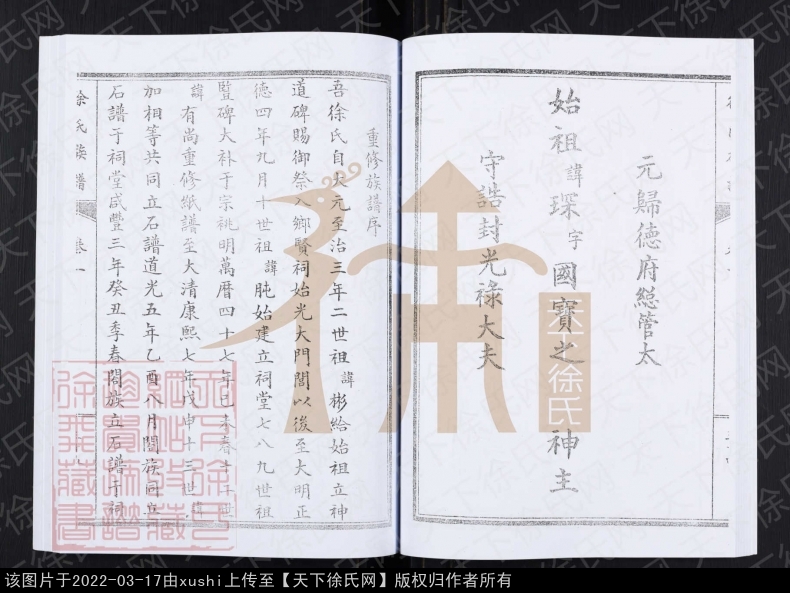 元歸德府總管太
始祖諱琛字國寶之神主
守誥封光祿大夫
重修族譜序
吾徐氏自大元至治三年二世祖諱彬給始祖立神
道碑賜御祭入鄉賢祠始光大門閭以後至大明正
德四年九月十世祖諱肫始建立祠堂七八九世祖
暨碑大補于宗祧明萬曆四十七年己未春十
諱有尚重修紙譜至大清康熙七年戊申十三世諱
加相等共同立石譜道光五年乙酉八月闔族同立
石譜于祠堂咸豐三年癸丑季春閤族立石譜于祠
余氏族譜
卷一
天下徐氏网
天下徐氏
该图片于2022-03-17由xushi上传至【天下徐氏网】版权归作者所有